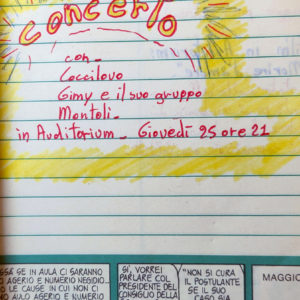 concerto
con-
Coccilovo
Gimy e il suo gruppo
Montoli-
in Auditorium- Giovedì 25 ore 21
SE IN AULA CI SARANNO
AGERIO E NUMERIO NEGIDIO...
LE CAUSE IN CUI NON CI
AULO AGERIO E NUMERIO
SÌ, VORREI
PARLARE COL
PRESIDENTE DEL
CONSIGLIO DELLA
"NON SI CURA
IL POSTULANTE
SE IL SUO
CASO SIA
MAGGIO